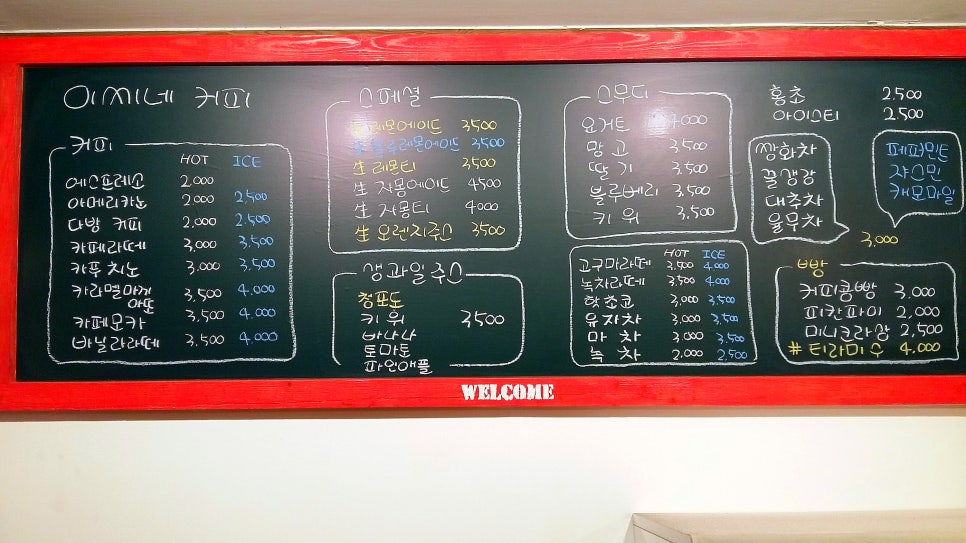 이씨네 커피
커피
HOT ICE
에스프레소 2.000
아메리카노 2.000 2,500
다방 커피 2.000 2.500
카페라떼 3,000 3,500
카푸치노 3,000 3,500
카라멜마끼아또 3,500 4.000
카페모카 3,500 4.000
바닐라라떼 3.500 4,000
스페셜
레몬에이드 3500
블루레몬에이드 3500
生 레몬티 3500
生 자몽에이드 4500
生 자몽티 4000
生 오렌지주스 3500
생과일주스
청포도
키위 3500
바나나
토마토
파인애플
스무디
요거트 4.000
망고 3,500
딸기 3.500
블루베리 3,500
키위 3,500
HOT ICE
고구마라떼 3,500 4.000
녹차라떼 3.500 4.000
핫초코 3,000 3,500
유자차 3,000 3,500
마차 3,000 3,500
녹차 2,000 2,500
홍초 2.500
아이스티 2.500
쌍화차
꿀생강
대추차
율무차
페퍼민트
쟈스민
캐모마일
3,000
빵
커피콩빵 3,000
피칸파이 2,000
미니크라상 2,500
# 티라미수 4,000
WELCOME